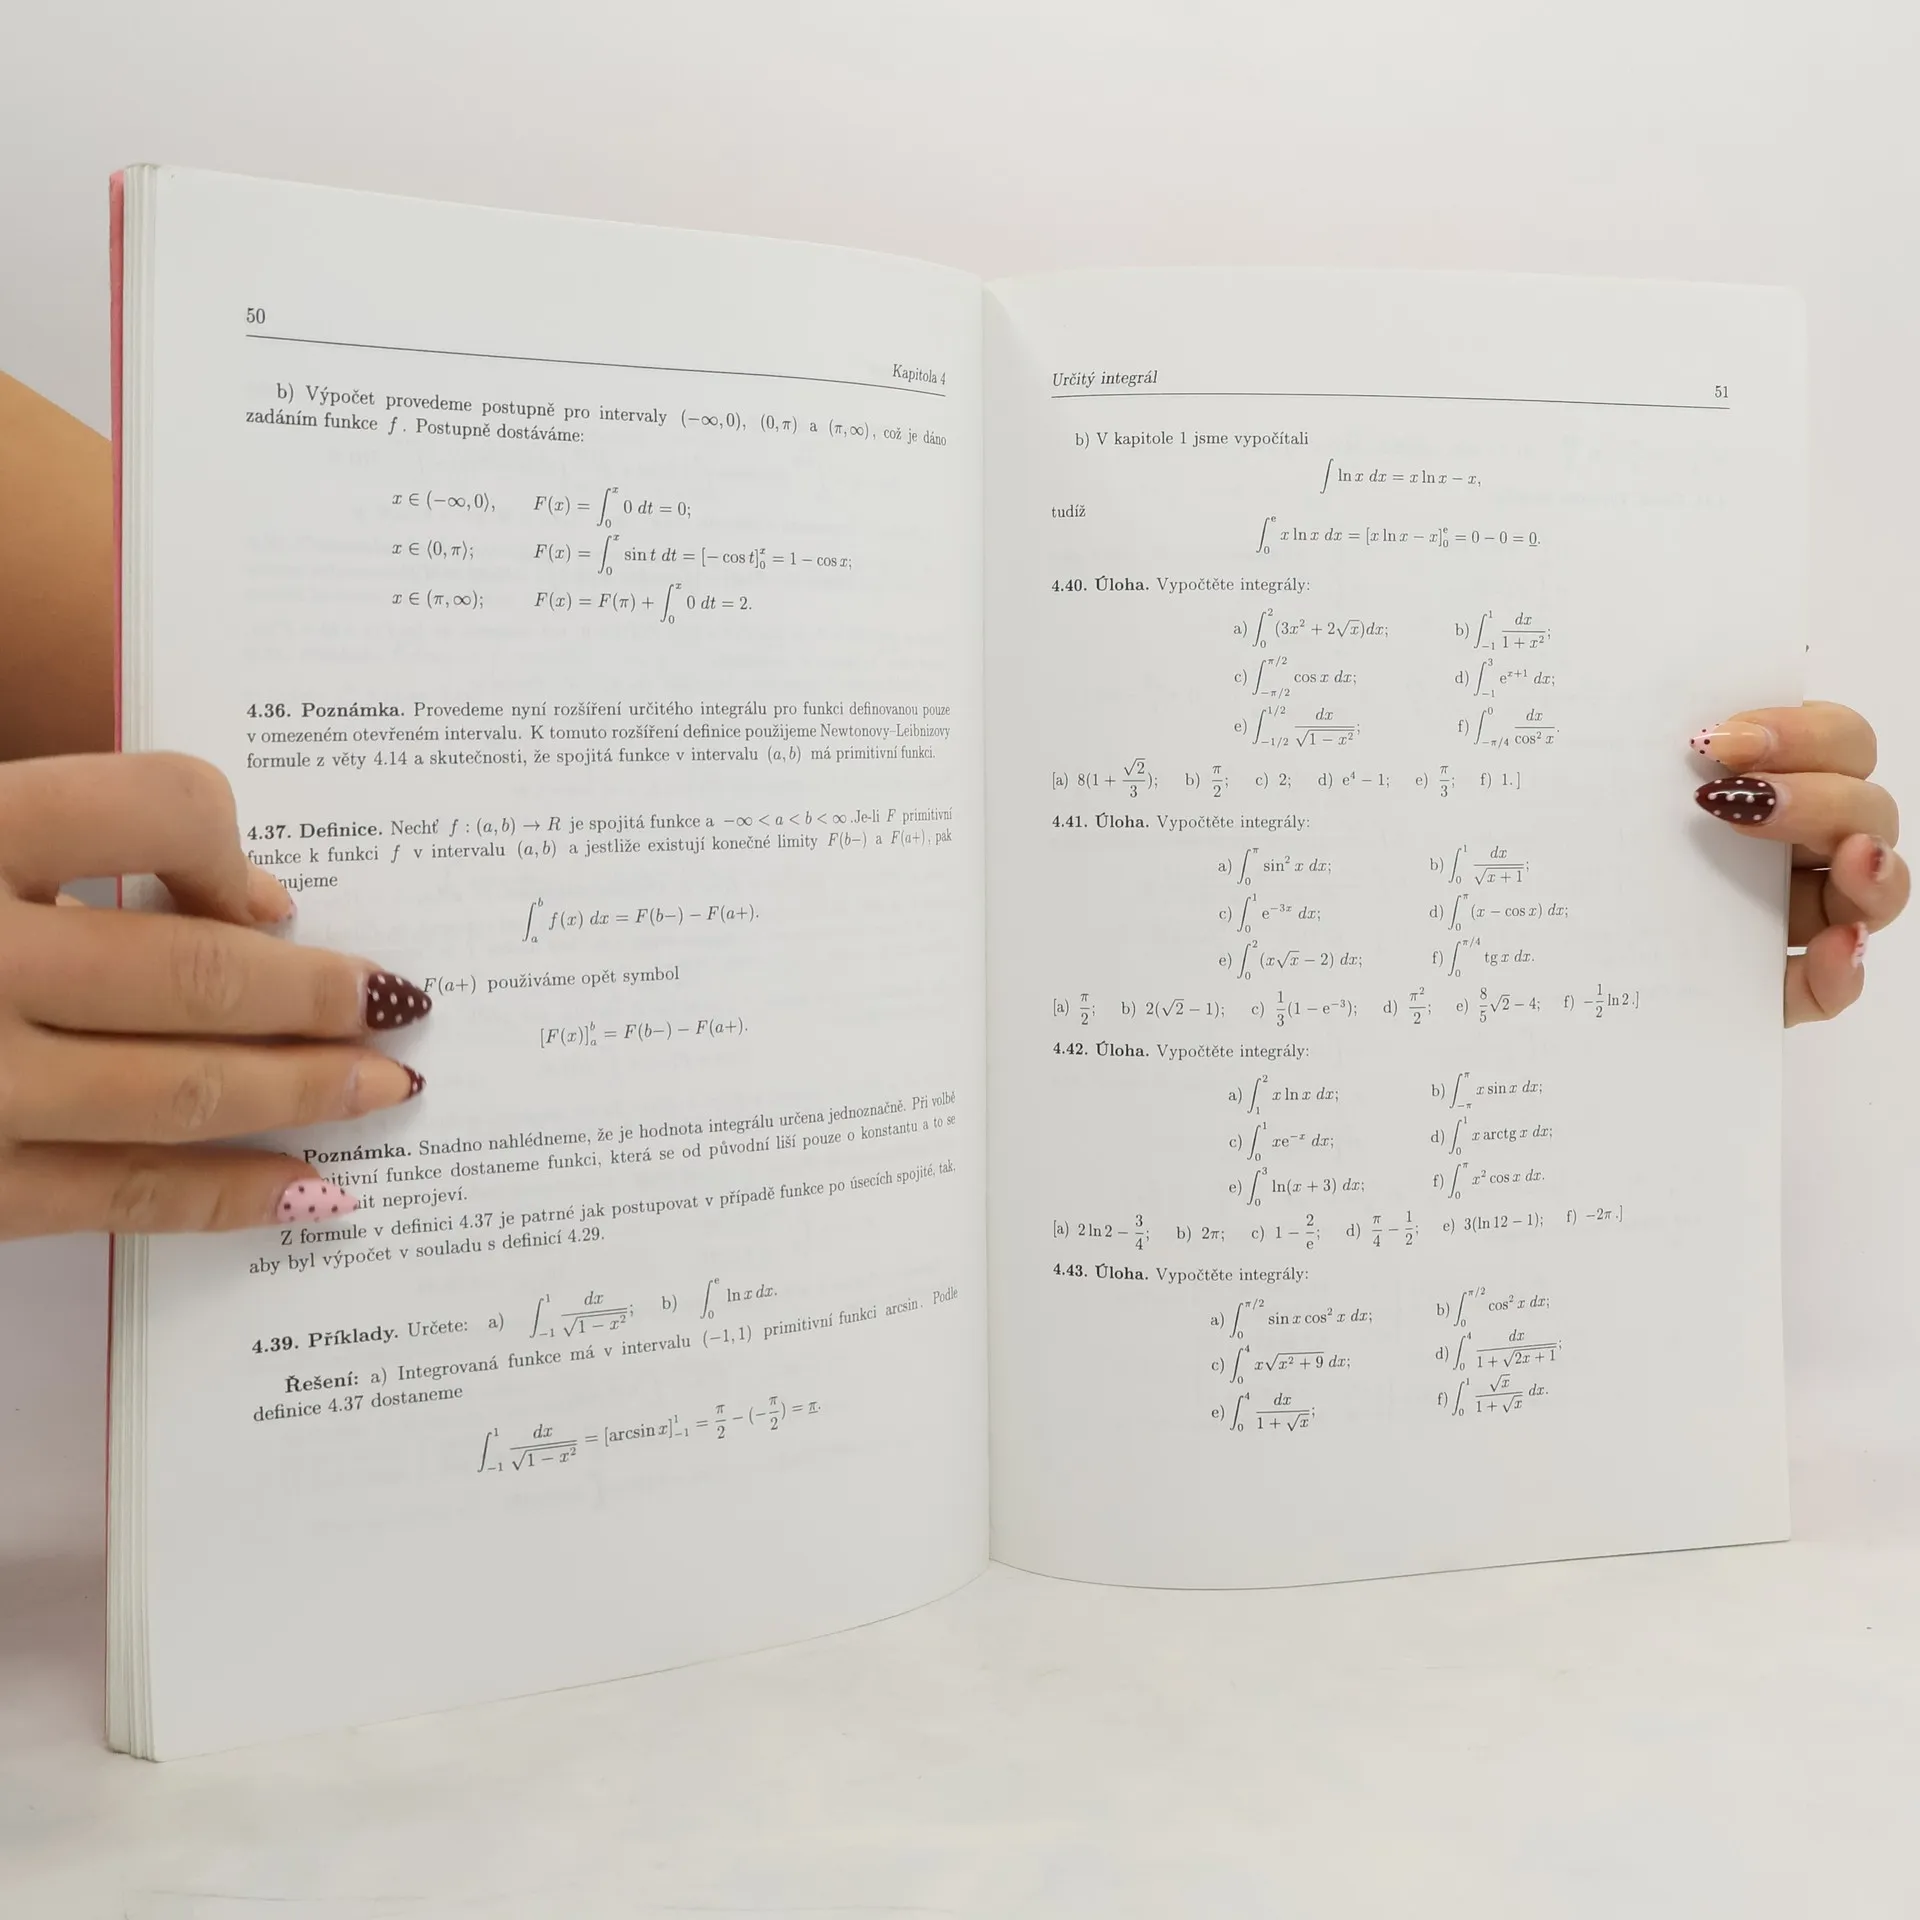 50
Kapitola 4
b) Výpočet provedeme postupně pro intervaly (−∞,0), (0,π) a (π,∞), což je dáno
zadáním funkce f . Postupně dostáváme:
x ∈ (−∞,0), F(x) = ∫₀ˣ 0 dt = 0;
x ∈ ⟨0, π⟩; F(x) = ∫₀ˣ sin t dt = [− cos t]₀ˣ = 1 − cos x;
x ∈ (π,∞); F(x) = F(π) + ∫₀ˣ 0 dt = 2.
4.36. Poznámka. Provedeme nyní rozšíření určitého integrálu pro funkci definovanou pouze
v omezeném otevřeném intervalu. K tomuto rozšíření definice použijeme Newtonovy–Leibnizovy
formule z věty 4.14 a skutečnosti, že spojitá funkce v intervalu (a,b) má primitivní funkci.
4.37. Definice. Nechť f : (a,b) → R je spojitá funkce a −∞ < a < b < ∞ .Je-li F primitivní
funkce k funkci f v intervalu (a,b) a jestliže existují konečné limity F(b−) a F(a+), pak
nujeme
∫ₐᵇ f(x) dx = F(b−) − F(a+).
F(a+) používáme opět symbol
[F(x)]ₐᵇ = F(b−) − F(a+).
Poznámka. Snadno nahlédneme, že je hodnota integrálu určena jednoznačně. Při volbě
itivní funkce dostaneme funkci, která se od původní liší pouze o konstantu a to se
it neprojeví.
Z formule v definici 4.37 je patrné jak postupovat v případě funkce po úsecích spojité, tak,
aby byl výpočet v souladu s definicí 4.29.
4.39. Příklady. Určete: a) ∫₋₁¹ dx/√(1 − x²); b) ∫₀ᵉ ln x dx.
Řešení: a) Integrovaná funkce má v intervalu (−1,1) primitivní funkci arcsin. Podle
definice 4.37 dostaneme
∫₋₁¹ dx/√(1 − x²) = [arcsin x]₋₁¹ = π/2 − (−π/2) = π.
Určitý integrál 51
b) V kapitole 1 jsme vypočítali
∫ ln x dx = x ln x − x,
tudíž
∫₀ᵉ x ln x dx = [x ln x − x]₀ᵉ = 0 − 0 = 0.
4.40. Úloha. Vypočtěte integrály:
a) ∫₀² (3x² + 2√x)dx; b) ∫₋₁¹ dx/(1 + x²);
c) ∫_{−π/2}^{π/2} cos x dx; d) ∫₋₁³ eˣ⁺¹ dx;
e) ∫_{−1/2}^{1/2} dx/√(1 − x²); f) ∫_{−π/4}^{0} dx/cos² x.
[a) 8(1 + √2/3); b) π/2; c) 2; d) e⁴ − 1; e) π/3; f) 1.]
4.41. Úloha. Vypočtěte integrály:
a) ∫₀^π sin² x dx; b) ∫₀¹ dx/√(x + 1);
c) ∫₀¹ e⁻³ˣ dx; d) ∫₀^π (x − cos x) dx;
e) ∫₀² (x√x − 2) dx; f) ∫₀^{π/4} tg x dx.
[a) π/2; b) 2(√2 − 1); c) 1/3(1 − e⁻³); d) π²/2; e) 8/5√2 − 4; f) −1/2 ln 2.]
4.42. Úloha. Vypočtěte integrály:
a) ∫₁² x ln x dx; b) ∫_{−π}^{π} x sin x dx;
c) ∫₀¹ xe⁻ˣ dx; d) ∫₀¹ x arctg x dx;
e) ∫₀³ ln(x + 3) dx; f) ∫₀^π x² cos x dx.
[a) 2 ln 2 − 3/4; b) 2π; c) 1 − 2/e; d) π/4 − 1/2; e) 3(ln 12 − 1); f) −2π.]
4.43. Úloha. Vypočtěte integrály:
a) ∫₀^{π/2} sin x cos² x dx; b) ∫₀^{π/2} cos² x dx;
c) ∫₀⁴ x√(x² + 9) dx; d) ∫₀⁴ dx/(1 + √(2x + 1));
e) ∫₀⁴ dx/(1 + √x); f) ∫₀¹ √x/(1 + √x) dx.